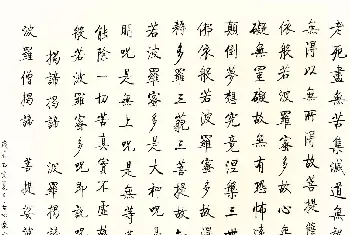 老死盡無苦集滅道無
無得以無所得故菩提薩
依般若波羅蜜多故心無
礙無罣礙故無有恐怖遠
顛倒夢想究竟涅槃三世
佛依般若波羅蜜多故
耨多羅三藐三菩提故
若波羅蜜多是大神咒
明咒是無上咒是無等
能除一切苦真實不虛故
般若波羅蜜多咒即說咒
揭諦揭諦 波羅揭諦
波羅僧揭諦 菩提娑婆